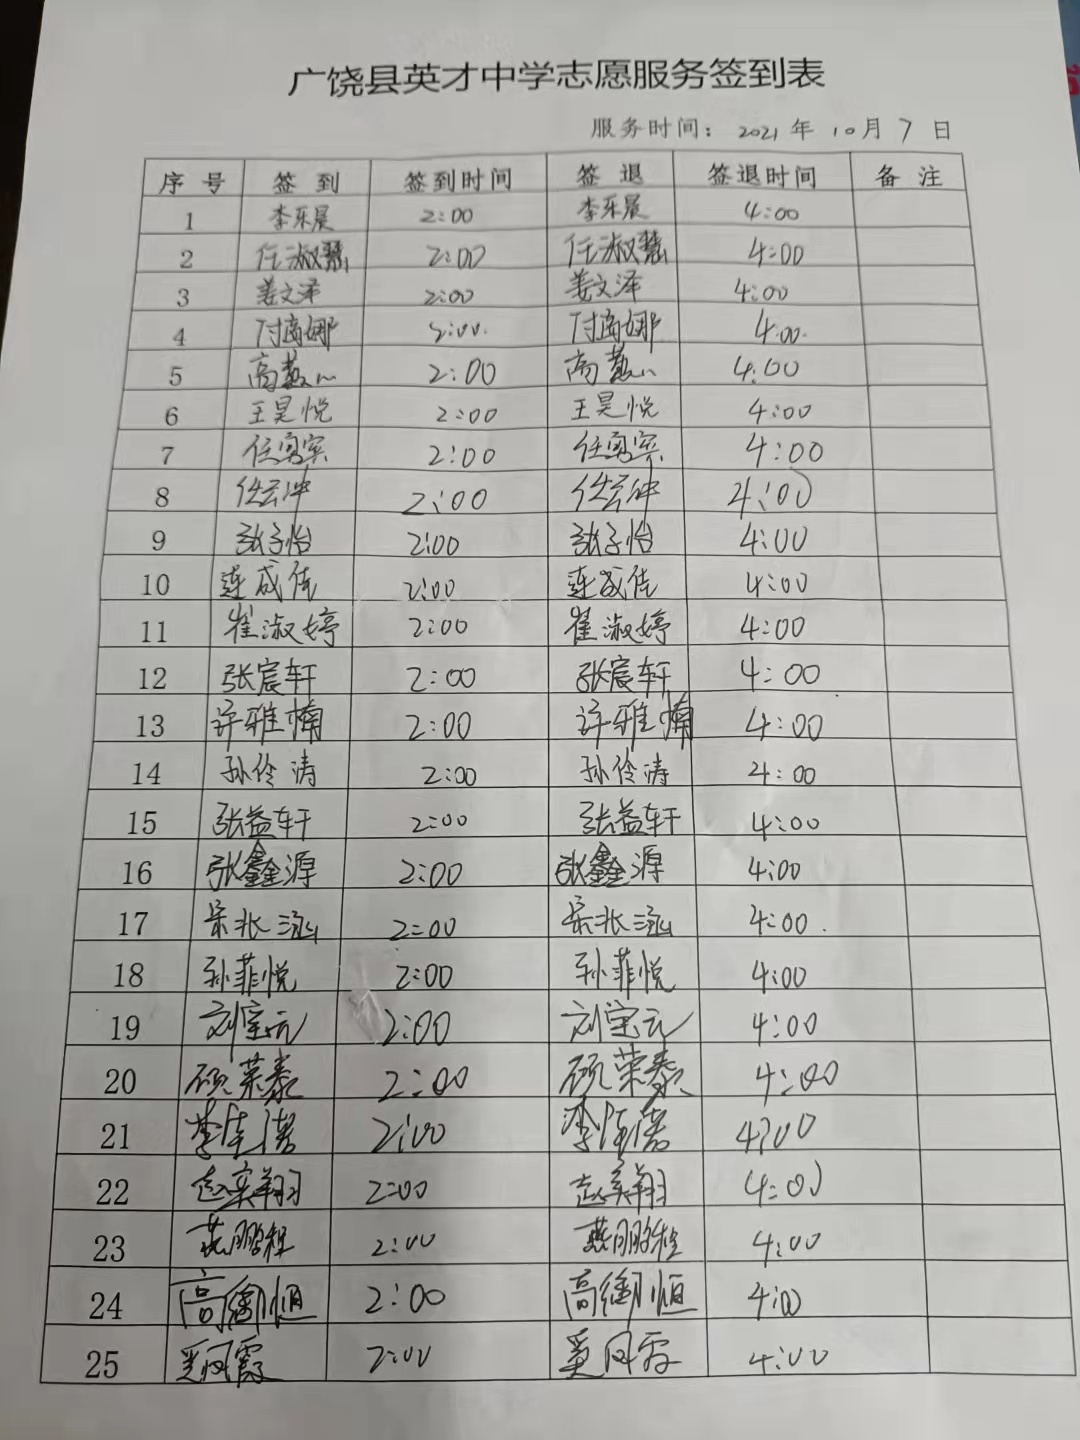 广饶县英才中学志愿服务签到表
服务时间：2021年10月7日
序号 签到 签到时间 签退 签退时间 备注
1 李乐晨 2:00 李乐晨 4:00
2 任淑慧 2:00 任淑慧 4:00
3 姜文泽 2:00 姜文泽 4:00
4 付娜 2:00 付娜 4:00
5 高 2:00 高 4:00
6 王昊悦 2:00 王昊悦 4:00
7 任 2:00 任 4:00
8 2:00 4:00
9 张子怡 2:00 张子怡 4:00
10 连成佳 2:00 连成佳 4:00
11 崔淑婷 2:00 崔淑婷 4:00
12 张宸轩 2:00 张宸轩 4:00
13 许雅楠 2:00 许雅楠 4:00
14 孙伶涛 2:00 孙伶涛 4:00
15 张益轩 2:00 张益轩 4:00
16 张鑫源 2:00 张鑫源 4:00
17 2:00 4:00
18 孙菲悦 2:00 孙菲悦 4:00
19 刘宝元 2:00 刘宝元 4:00
20 顾荣泰 2:00 顾荣泰 4:00
21 李 2:00 李 4:00
22 赵奕翔 2:00 赵奕翔 4:00
23 燕鹏程 2:00 燕鹏程 4:00
24 高衡恒 2:00 高衡恒 4:00
25 2:00 4:00